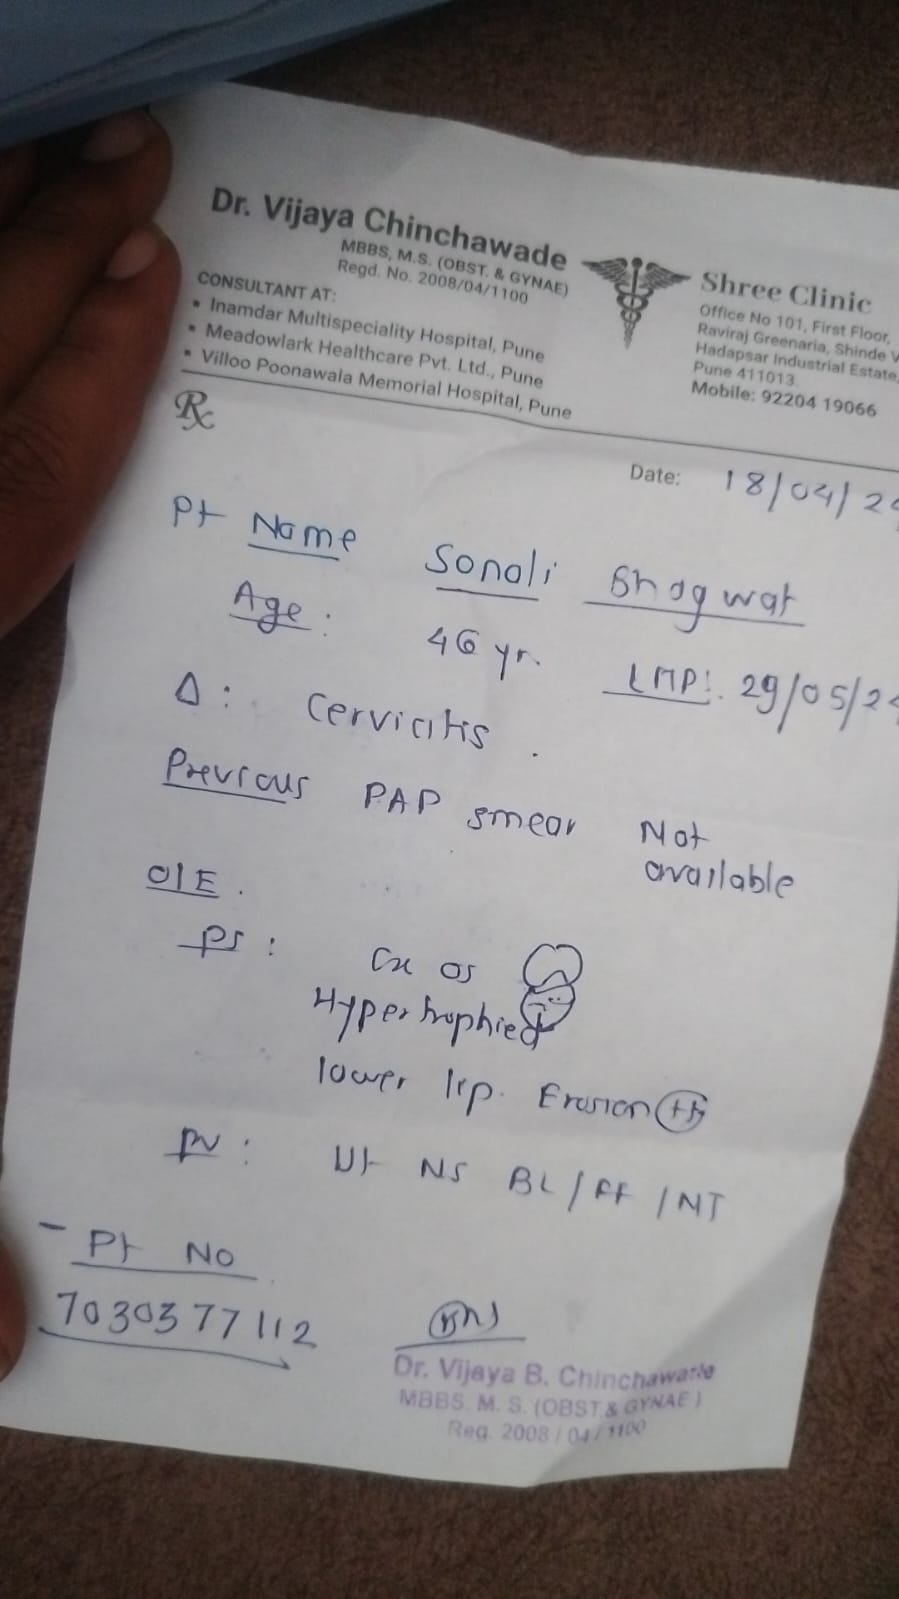 Dr. Vijaya Chinchawade
MBBS, M.S. (OBST. & GYNAE)
Regd. No. 2008/04/1100
CONSULTANT AT:
• Inamdar Multispeciality Hospital, Pune
• Meadowlark Healthcare Pvt. Ltd., Pune
• Villoo Poonawala Memorial Hospital, Pune
Shree Clinic
Office No 101, First Floor,
Raviraj Greenaria, Shinde
Hadapsar Industrial Estate,
Pune 411013.
Mobile: 92204 19066
Rx
Date: 18/04/2
Pt Name Sonali Bhagwat
Age: 46 yr. LMP: 29/05/2
Δ: Cervicitis.
Previous PAP smear Not
available
O/E.
PS: Cx OS
Hypertrophied
lower lip. Erosion
PV: Ut NS BL/FF/NT
- Pt No
7030377112
Dr. Vijaya B. Chinchawade
MBBS. M. S. (OBST.& GYNAE )
Reg. 2008 / 04 / 1100